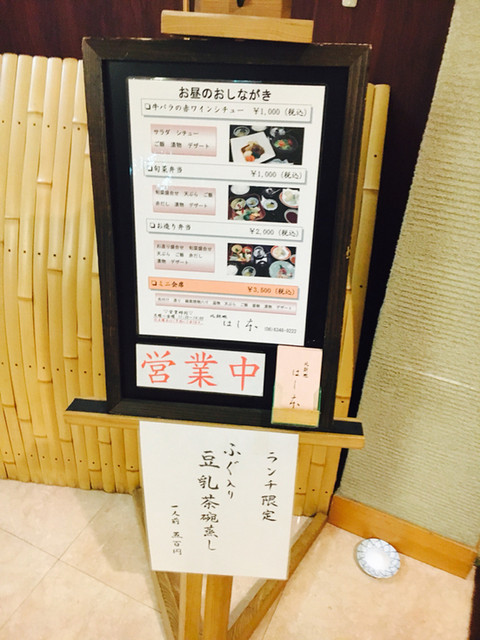 お昼のおしながき
❑牛バラの赤ワインシチュー ￥1,000 (税込)
サラダ シチュー
ご飯 漬物 デザート
❑旬菜弁当 ￥1,000 (税込)
旬菜盛合せ 天ぷら ご飯
赤だし 漬物 デザート
❑お造り弁当 ￥2,000 (税込)
お造り盛合せ 旬菜盛合せ
天ぷら ご飯 赤だし
漬物 デザート
❑ミニ会席 ￥3,500 (税込)
はし本
営業中
はし本
ランチ限定
ふぐ入り
豆乳茶碗蒸し
一人前 五百円